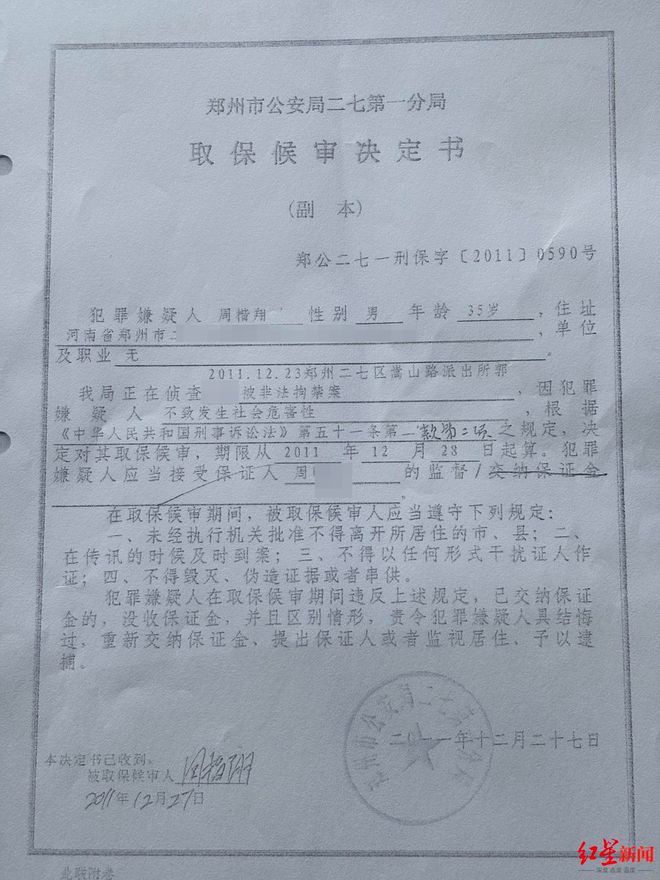 郑州市公安局二七第一分局
取保候审决定书
(副 本)
郑公二七一刑保字〔2011〕0590号
犯罪嫌疑人 周楷翔 性别 男 年龄 35岁 ,住址
河南省郑州市二 ,单位
及职业 无 。
2011.12.23郑州二七区嵩山路派出所郭
我局正在侦查 被非法拘禁案 ,因犯罪
嫌疑人 不致发生社会危害性 ,根据
《中华人民共和国刑事诉讼法》第五十一条第一款第二项之规定,决
定对其取保候审,期限从 2011 年 12 月 28 日起算。犯罪
嫌疑人应当接受保证人 周 的监督/交纳保证金
。
在取保候审期间,被取保候审人应当遵守下列规定:
一、未经执行机关批准不得离开所居住的市、县;二、
在传讯的时候及时到案;三、不得以任何形式干扰证人作
证;四、不得毁灭、伪造证据或者串供。
犯罪嫌疑人在取保候审期间违反上述规定,已交纳保证
金的,没收保证金,并且区别情形,责令犯罪嫌疑人具结悔
过,重新交纳保证金、提出保证人或者监视居住、予以逮
捕。
二〇一一年十二月二十七日
本决定书已收到。
被取保候审人 周楷翔
2011年12月27日
此联附卷
红星新闻
深度 态度 温度